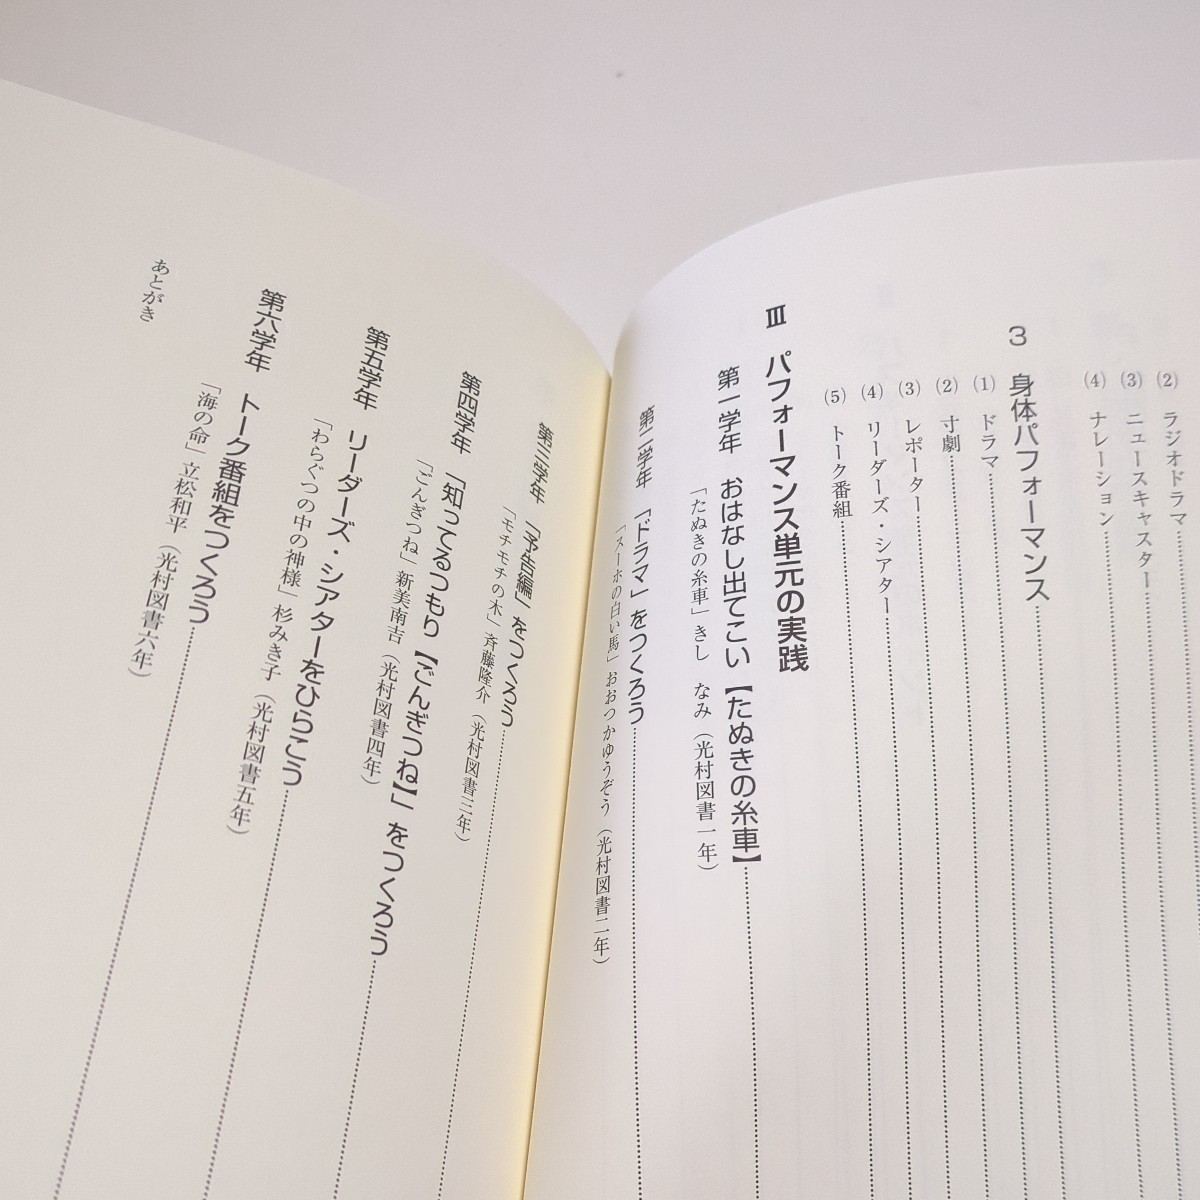 (2) ラジオドラマ
(3) ニュースキャスター
(4) ナレーション
3 身体パフォーマンス
(1) ドラマ
(2) 寸劇
(3) レポーター
(4) リーダーズ・シアター
(5) トーク番組
Ⅲ パフォーマンス単元の実践
第一学年 おはなし出てこい【たぬきの糸車】
「たぬきの糸車」きし なみ（光村図書一年）
第二学年 「ドラマ」をつくろう
「スーホの白い馬」おおつかゆうぞう（光村図書二年）
第三学年 「予告編」をつくろう
「モチモチの木」斉藤隆介（光村図書三年）
第四学年 「知ってるつもり【ごんぎつね】」をつくろう
「ごんぎつね」新美南吉（光村図書四年）
第五学年 リーダーズ・シアターをひらこう
「わらぐつの中の神様」杉みき子（光村図書五年）
第六学年 トーク番組をつくろう
「海の命」立松和平（光村図書六年）
あとがき